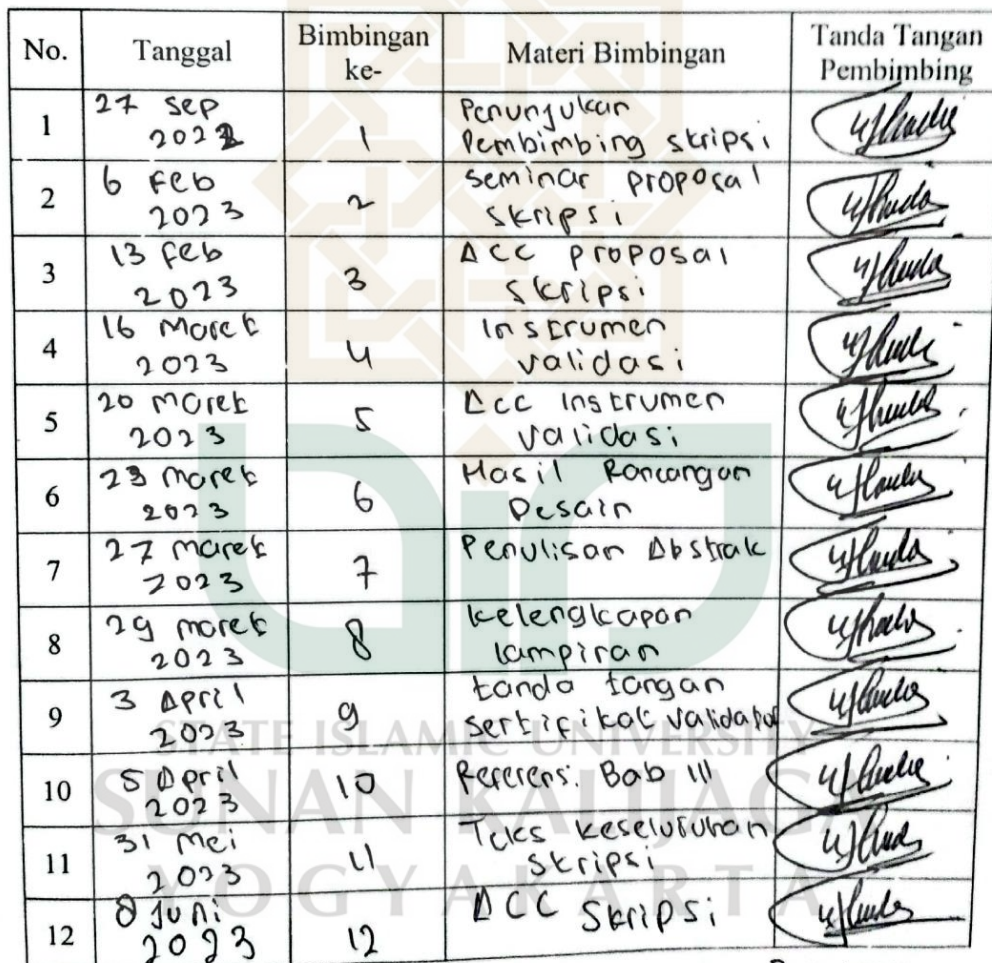 No. Tanggal Bimbingan ke- Materi Bimbingan Tanda Tangan Pembimbing
1 27 Sep 2022 1 Penunjukan Pembimbing skripsi
2 6 Feb 2023 2 Seminar proposal skripsi
3 13 Feb 2023 3 ACC proposal skripsi
4 16 Maret 2023 4 Instrumen validasi
5 20 Maret 2023 5 Acc Instrumen validasi
6 23 Maret 2023 6 Hasil Rancangan Desain
7 27 Maret 2023 7 Penulisan Abstrak
8 29 Maret 2023 8 kelengkapan lampiran
9 3 April 2023 9 tanda tangan sertifikat validator
10 5 April 2023 10 Referensi Bab III
11 31 Mei 2023 11 Teks keseluruhan skripsi
12 8 Juni 2023 12 ACC Skripsi
STATE ISLAMIC UNIVERSITY
SUNAN KALIJAGA
YOGYAKARTA